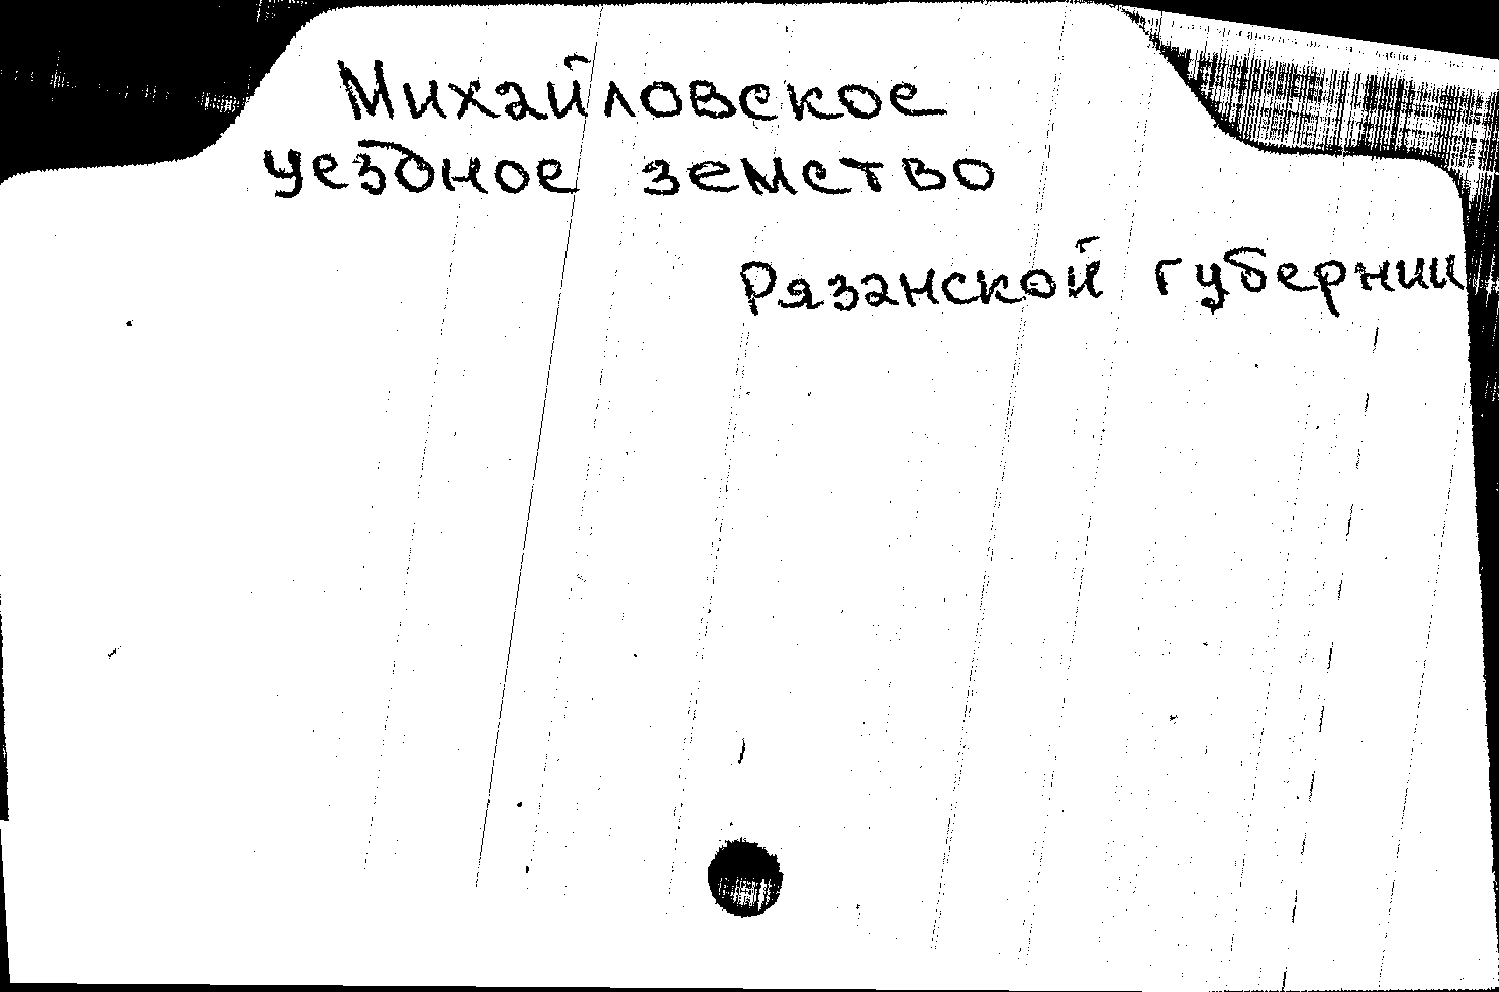 Михайловское
уездное земство
Рязанской губернии